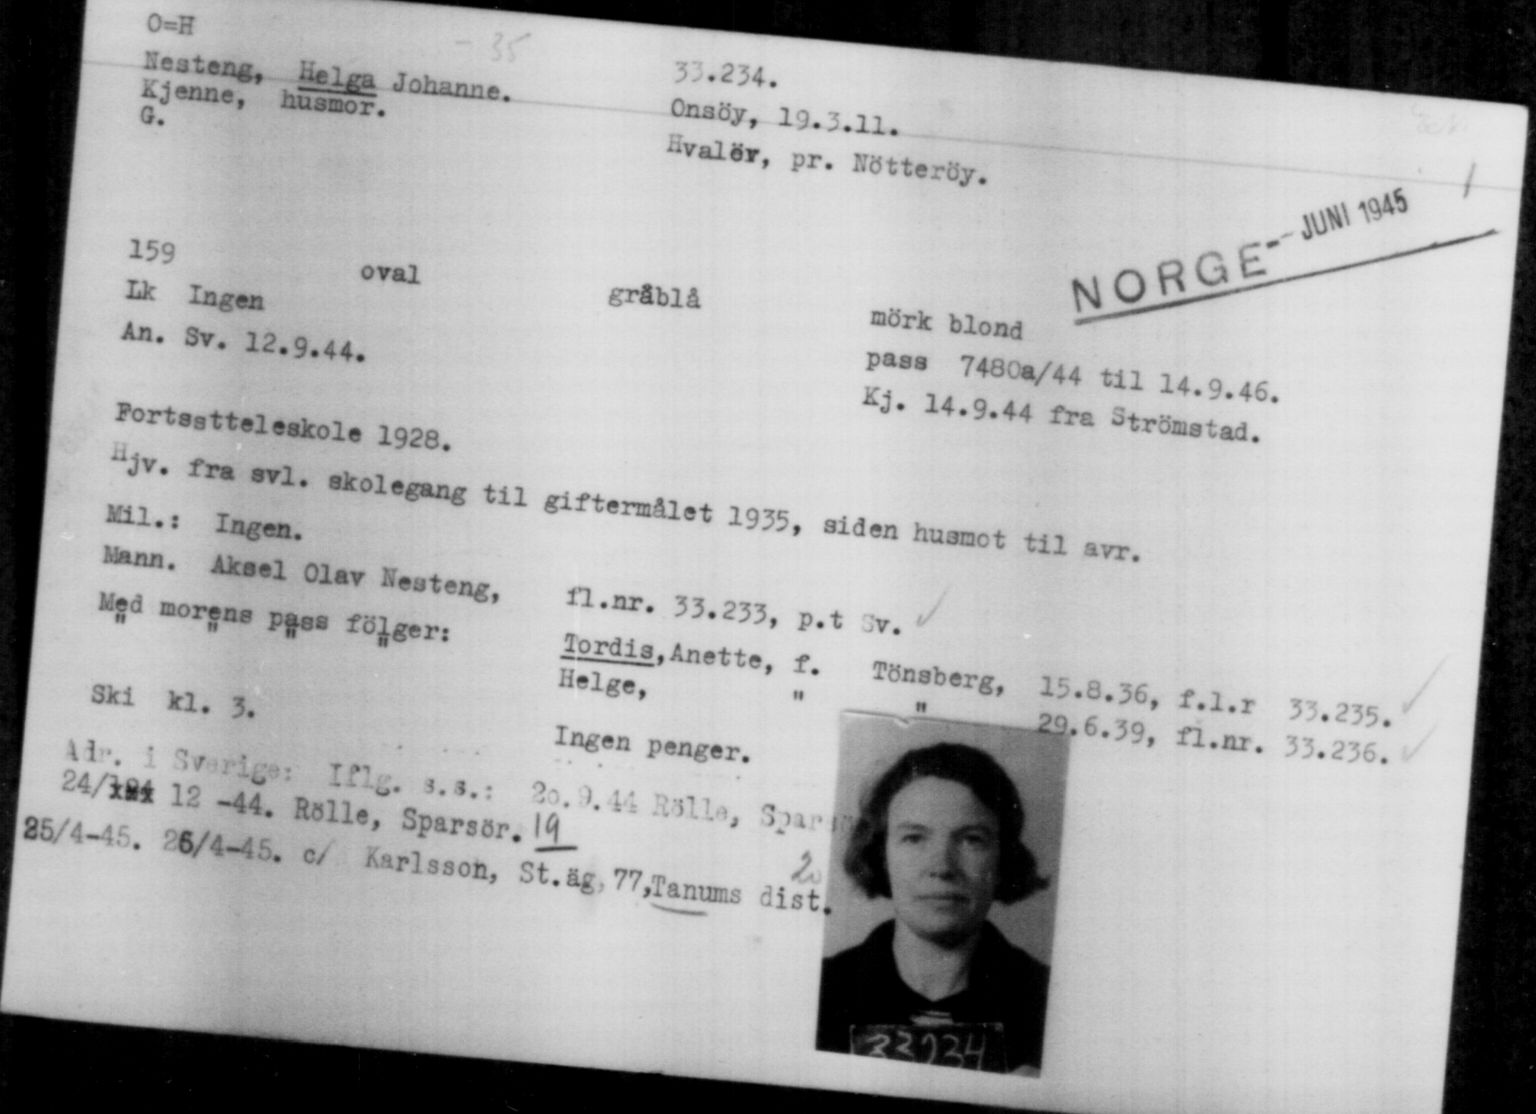 O=H
- 35
Nesteng, Helga Johanne. 33.234.
Kjenne, husmor. Onsöy, 19.3.11.
G. Hvalör, pr. Nötteröy.
1
NORGE - - JUNI 1945
159 oval gråblå mörk blond
Lk Ingen pass 7480a/44 til 14.9.46.
An. Sv. 12.9.44. Kj. 14.9.44 fra Strömstad.
Fortsstteleskole 1928.
Hjv. fra svl. skolegang til giftermålet 1935, siden husmot til avr.
Mil.: Ingen.
Mann. Aksel Olav Nesteng, fl.nr. 33.233, p.t Sv.
Med morens pass fölger: Tordis, Anette, f. Tönsberg, 15.8.36, f.l.r 33.235.
" " " " Helge, " " 29.6.39, fl.nr. 33.236.
Ski kl. 3. Ingen penger.
Adr. i Sverige: Iflg. s.s.: 20.9.44 Rölle,
24/ 12 -44. Rölle, Sparsör. 19
25/4-45. 26/4-45. c/ Karlsson, St.äg, 77, Tanums dist.
20
33234